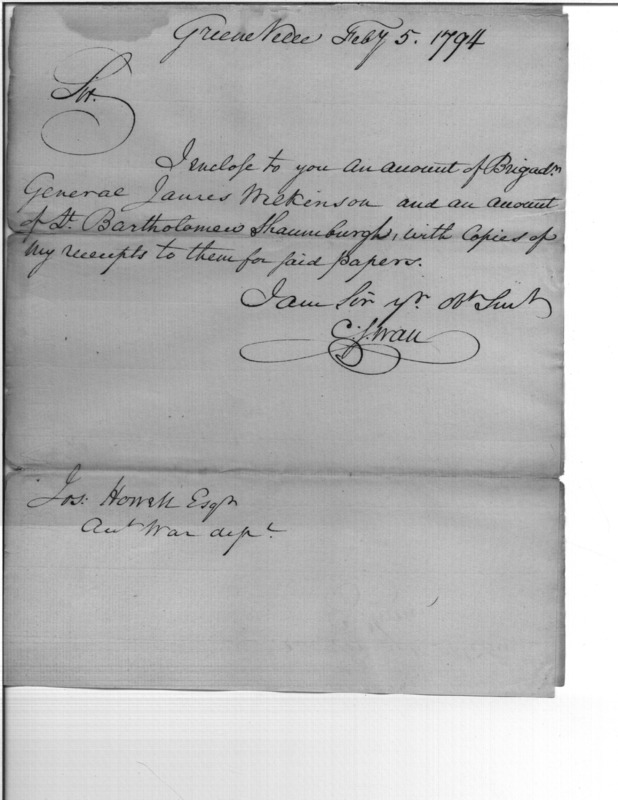 Greene Ville Feby 5. 1794
Sir.
I enclose to you an account of Brigadr.
General James Wilkinson and an account
of Lt. Bartholomew Shaumburgh, with Copies of
my receipts to them for said papers.
I am Sir yr. Obt Servt
C. Swan
Jos: Howell Esqr
Act War dept.